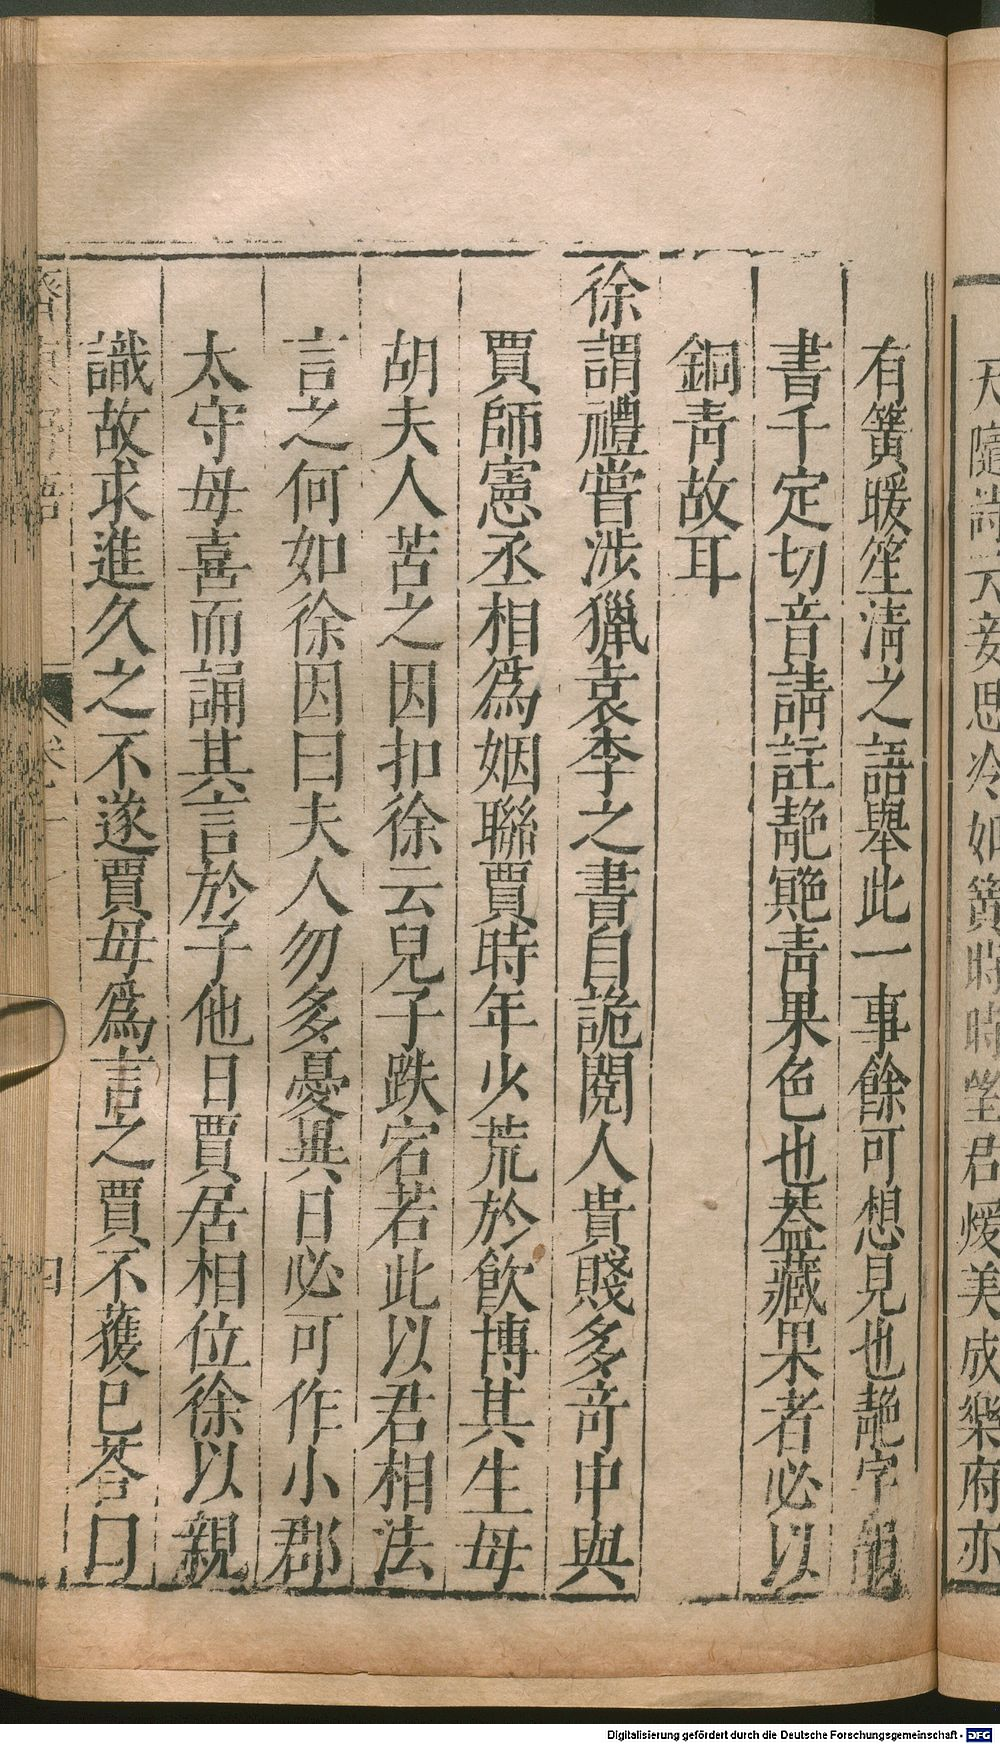 天隨詩云妾思冷如簧時時望君煖美成樂府亦
有簧暖笙清之語舉此一事餘可想見也靘字韻
書千定切音請註靘䒌青果色也葢藏果者必以
銅青故耳
徐謂禮嘗涉獵袁李之書自詭閱人貴賤多奇中與
賈師憲丞相爲姻聯賈時年少荒於飮博其生母
胡夫人苦之因扣徐云兒子跌宕若此以君相法
言之何如徐因曰夫人勿多憂異日必可作小郡
太守母喜而誦其言於子他日賈居相位徐以親
識故求進久之不遂賈母爲言之賈不獲已荅曰
齊東野語
卷十
四
Digitalisierung gefördert durch die Deutsche Forschungsgemeinschaft - DFG